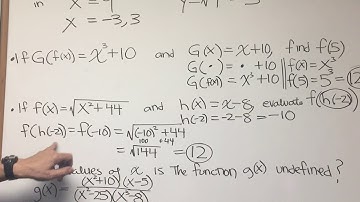 x = -3,3
• If G(f(x)) = x³+10 and G(x) = x+10, find f(5)
G(•) = • +10 | f(x) = x³
G(f(x)) = x³+10 | f(5) = 5³ = 12
• If f(x) = √x²+44 and h(x) = x-8, evaluate f(h(-2))
f(h(-2)) = f(-10) = √(-10)²+44 h(-2) = -2-8 = -10
100 +44
= √144 = 12
values of x is The function g(x) undefined?
g(x) = (x²+10)(x-5)
(x²-25)(x³-8)